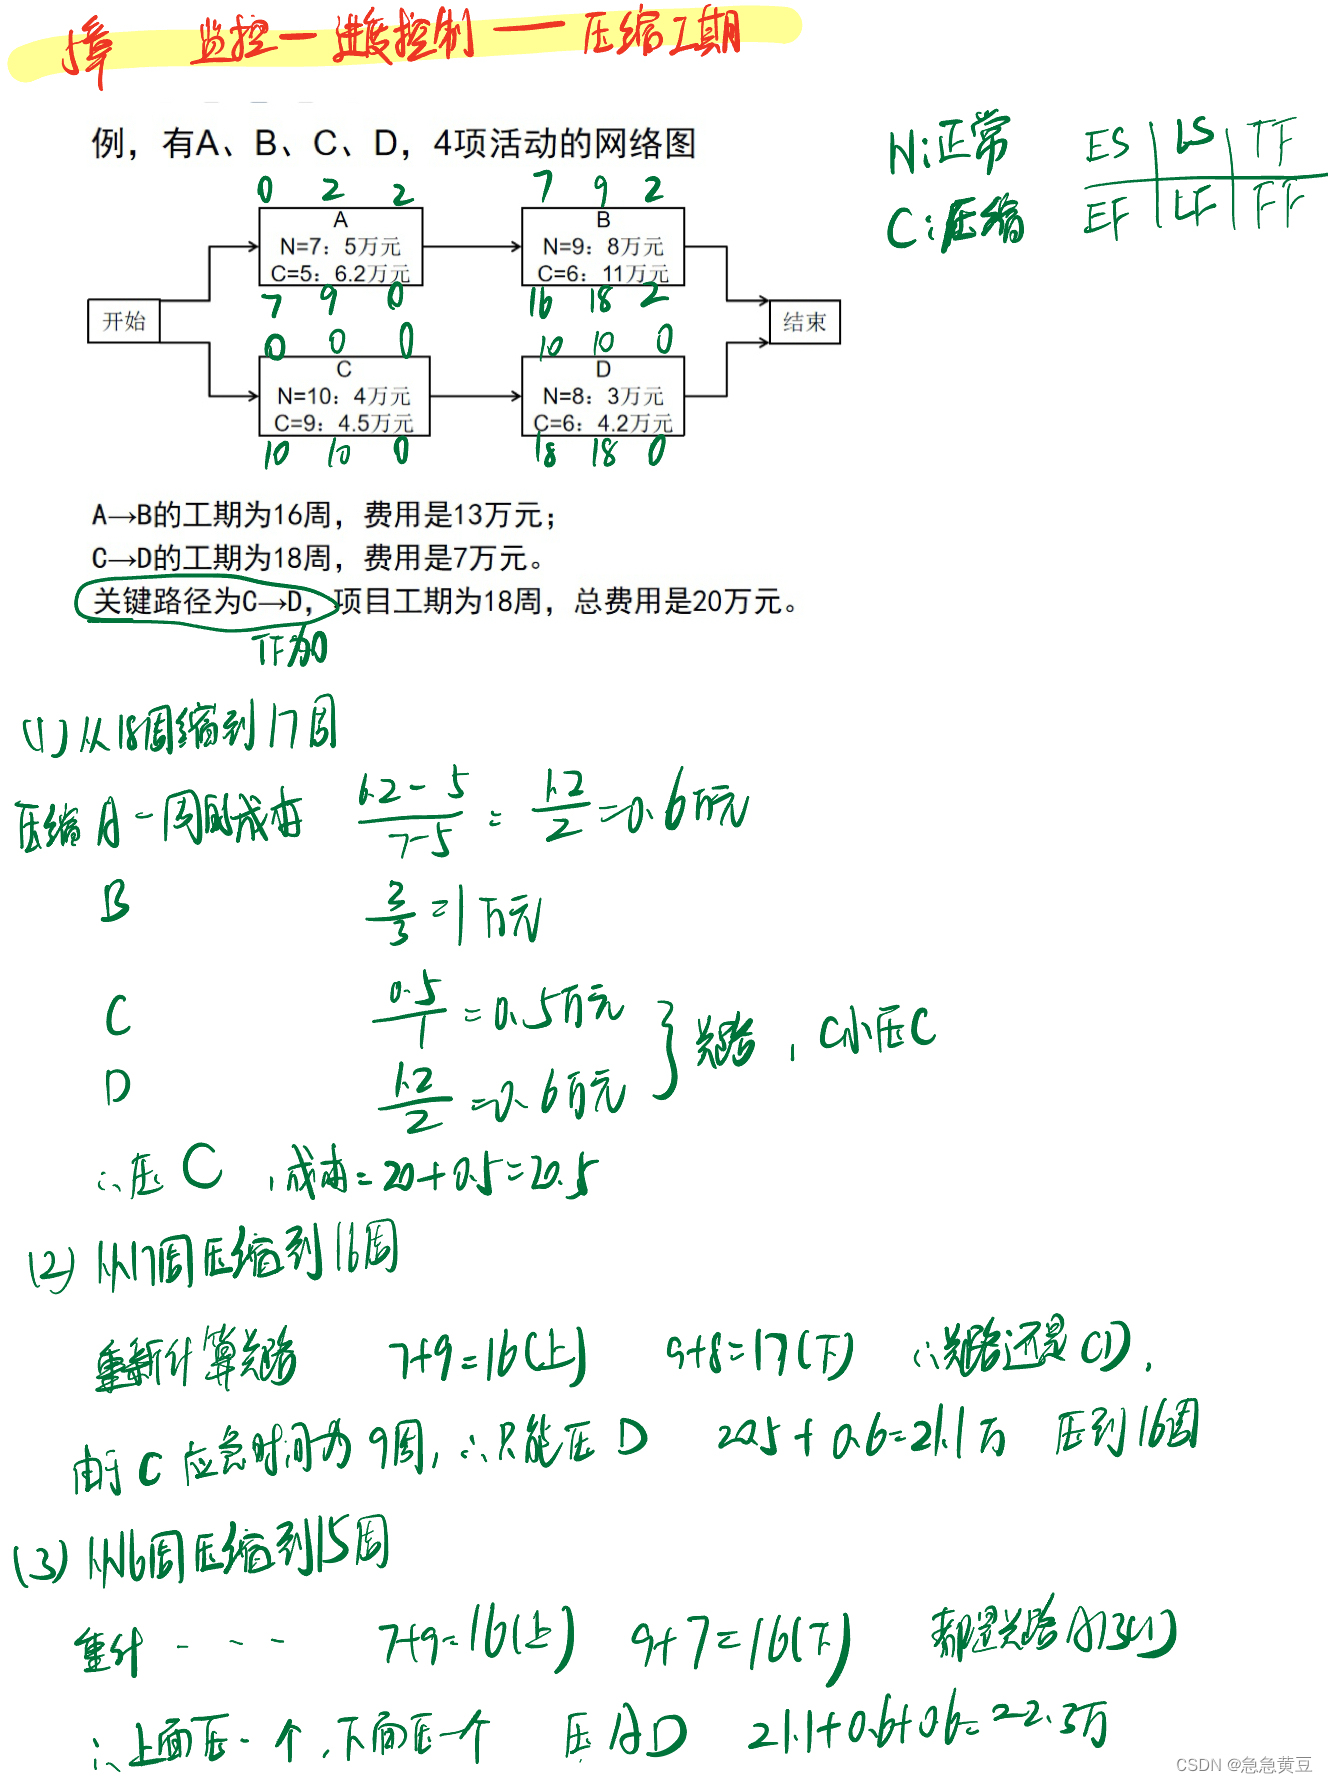 5章 监控一进度控制 — 压缩工期
例，有A、B、C、D，4项活动的网络图
N:正常 ES LS TF
C:压缩 EF LF FF
0 2 2 7 9 2
A B
N=7：5万元 N=9：8万元
C=5：6.2万元 C=6：11万元
7 9 0 16 18 2
开始 结束
0 0 0 10 10 0
C D
N=10：4万元 N=8：3万元
C=9：4.5万元 C=6：4.2万元
10 10 0 18 18 0
A→B的工期为16周，费用是13万元；
C→D的工期为18周，费用是7万元。
关键路径为C→D，项目工期为18周，总费用是20万元。
TF为0
(1) 从18周缩到17周
压缩A一周的成本 6.2-5/7-5 = 1.2/2 =0.6万元
B 3/3 =1万元
C 0.5/1 =0.5万元
D 1.2/2 =0.6万元
关路，C小压C
∴压C，成本=20+0.5=20.5
(2) 从17周压缩到16周
重新计算关路 7+9=16(上) 9+8=17(下) ∴关路还是CD，
由于C应急时间为9周，∴只能压D 20.5+0.6=21.1万 压到16周
(3) 从16周压缩到15周
重计---- 7+9=16(上) 9+7=16(下) 都是关路ABCD
∴上面压一个，下面压一个 压AD 21.1+0.6+0.6=22.3万
CSDN @急急黄豆